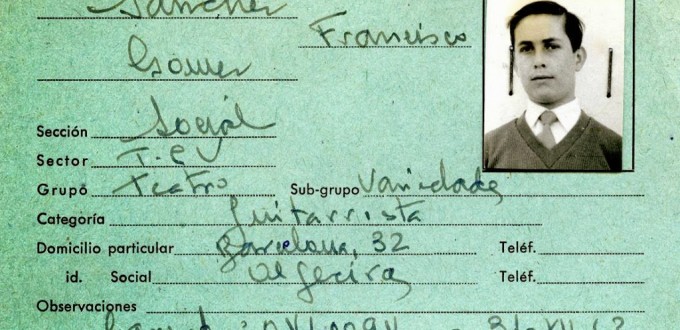 Sanchez
Francisco
Gomez
Sección Social
Sector T.C.V
Grupo Teatro Sub-grupo Variedades
Categoría Guitarrista
Domicilio particular Barcelona, 32 Teléf.
id. Social Algeciras Teléf.
Observaciones